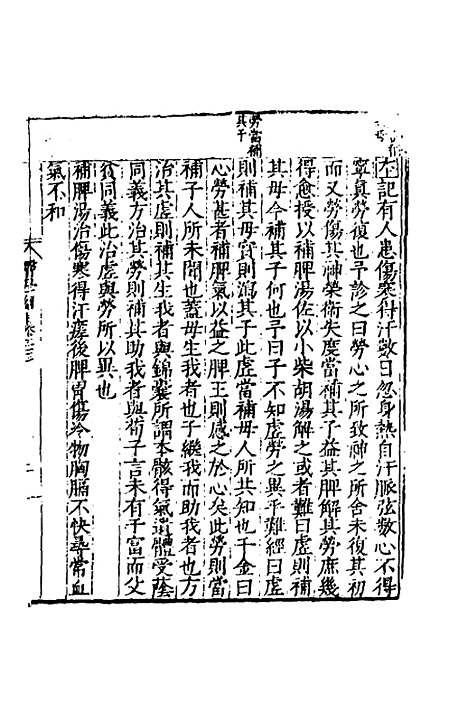 左記有人患傷寒得汗數日忽身熱自汗脈弦數心不得
寧真勞復也予診之曰勞心之所致神之所舍未復其初
而又勞傷其神榮衛失度當補其子益其脾解其勞庶幾
得愈授以補脾湯佐以小柴胡湯解之或者難曰虛則補
其母今補其子何也予曰子不知虛勞之異乎難經曰虛
則補其母實則瀉其子此虛當補母人所共知也千金曰
心勞甚者補脾氣以益之脾王則感之於心矣此勞則當
補子人所未聞也蓋母生我者也子繼我而助我者也方
治其虛則補其生我者與錦囊所謂本骸得氣遺體受蔭
同義方治其勞則補其助我者與荀子言未有子富而父
貧同義此治虛與勞所以異也
補脾湯治傷寒得汗瘥後脾胃傷冷物胸膈不快尋常血
氣不和
勞當補
其子